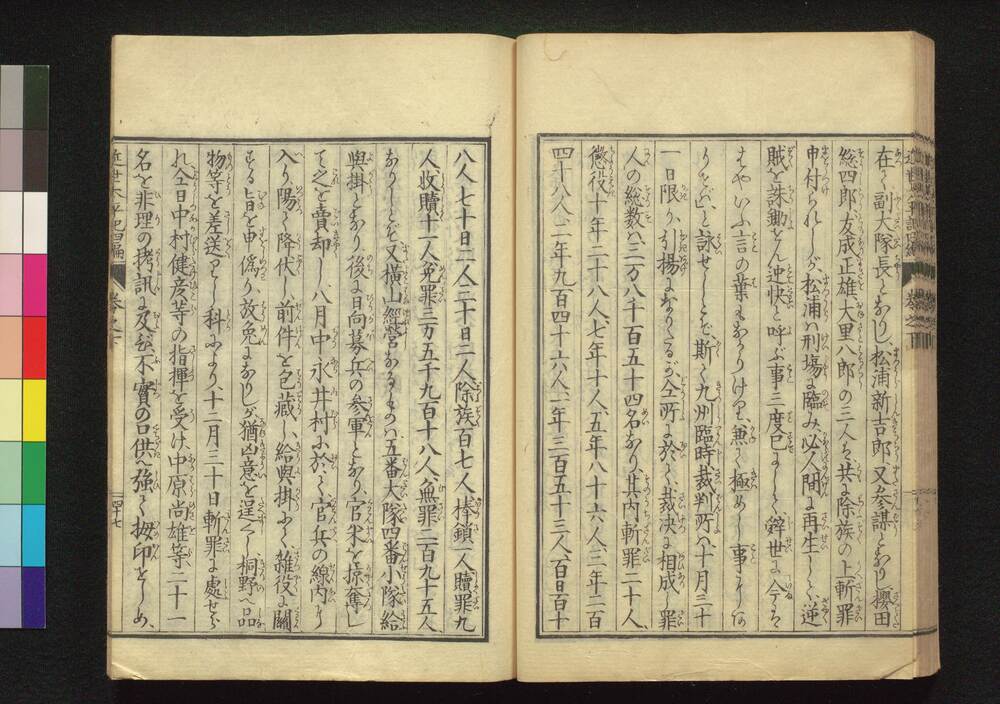 在て副大隊長となりし松浦新吉郎又参謀となり櫻田
総四郎友成正雄大里八郎の三人を共に除族の上斬罪
申付られしが松浦ハ刑場に臨み必人間に再生して逆
賊を誅鋤せん逆快と呼ぶ事三度已にして辞世に今ら
はやいふ言の葉もなかりけり兼て極めし事
と詠せしとぞ斯て九州臨時裁判所ハ十月三十
一日限り引揚になりたるが仝所に於て裁决に相成し罪
人の総数ハ三万八千百五十四名なり其内斬罪二十人
懲役十年二十八人七年十人五年八十六人三年二百
四十八人二年九百四十六人一年三百五十三人百日百十
八人七十日一人三十日二人除族百七人棒鎖一人贖罪九
人收贖十一人免罪三万五千九百十八人無罪二百九十五人
なりしとぞ又横山經營なるものハ五番大隊四番小隊給
與掛となり後に日向募兵の參軍となり官米を掠奪し
て之を賣却し八月中永井村に於て官兵の線内に
入り陽に降伏し前件を包藏し給與掛にて雑役に關
する旨を申偽り放免になりしが猶凶意を逞くし桐野へ品
物等を差送りし科により十二月三十日斬罪に處せら
れ仝日中村健彦等の指揮を受け中原尚雄等二十一
名を非理の拷訊に及び不實の口供へ強て拇印をしめ
近世太平記四編 巻之下 四十七